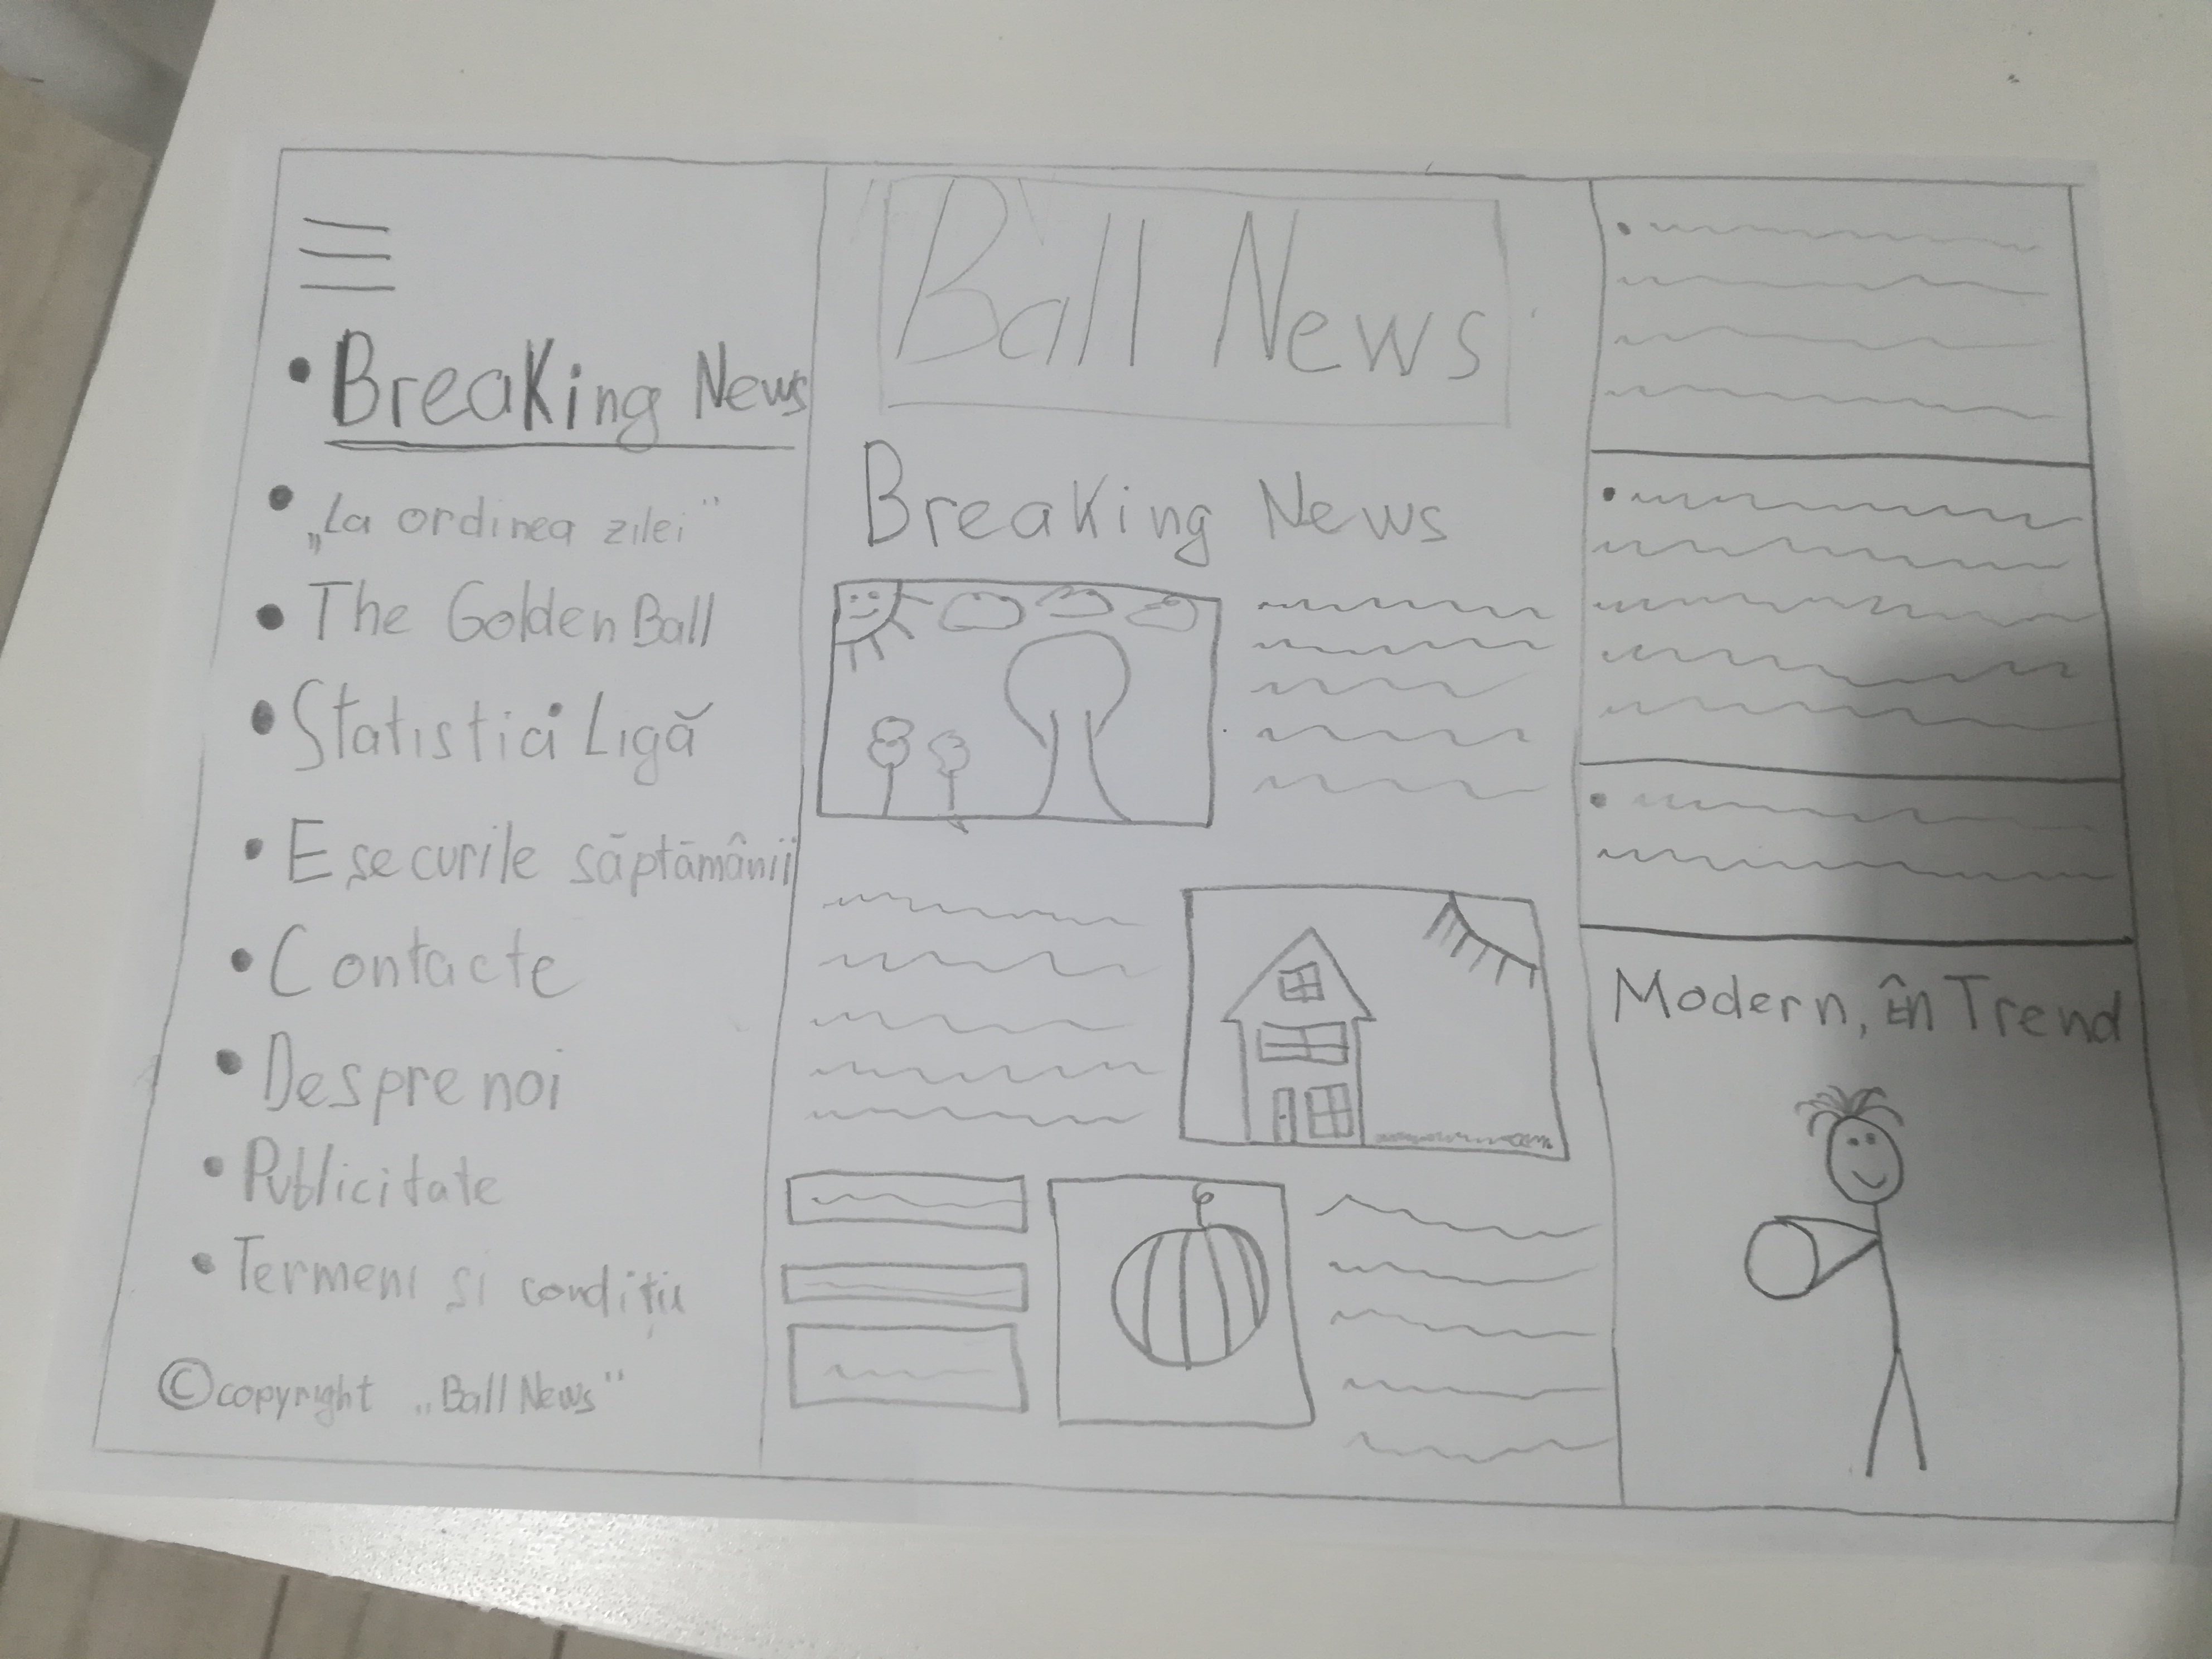 Breaking News
„La ordinea zilei"
The Golden Ball
Statistici Ligă
Eșecurile săptămânii
Contacte
Despre noi
Publicitate
Termeni si condiții
© copyright „Ball News"
Ball News
Breaking News
Modern, în Trend